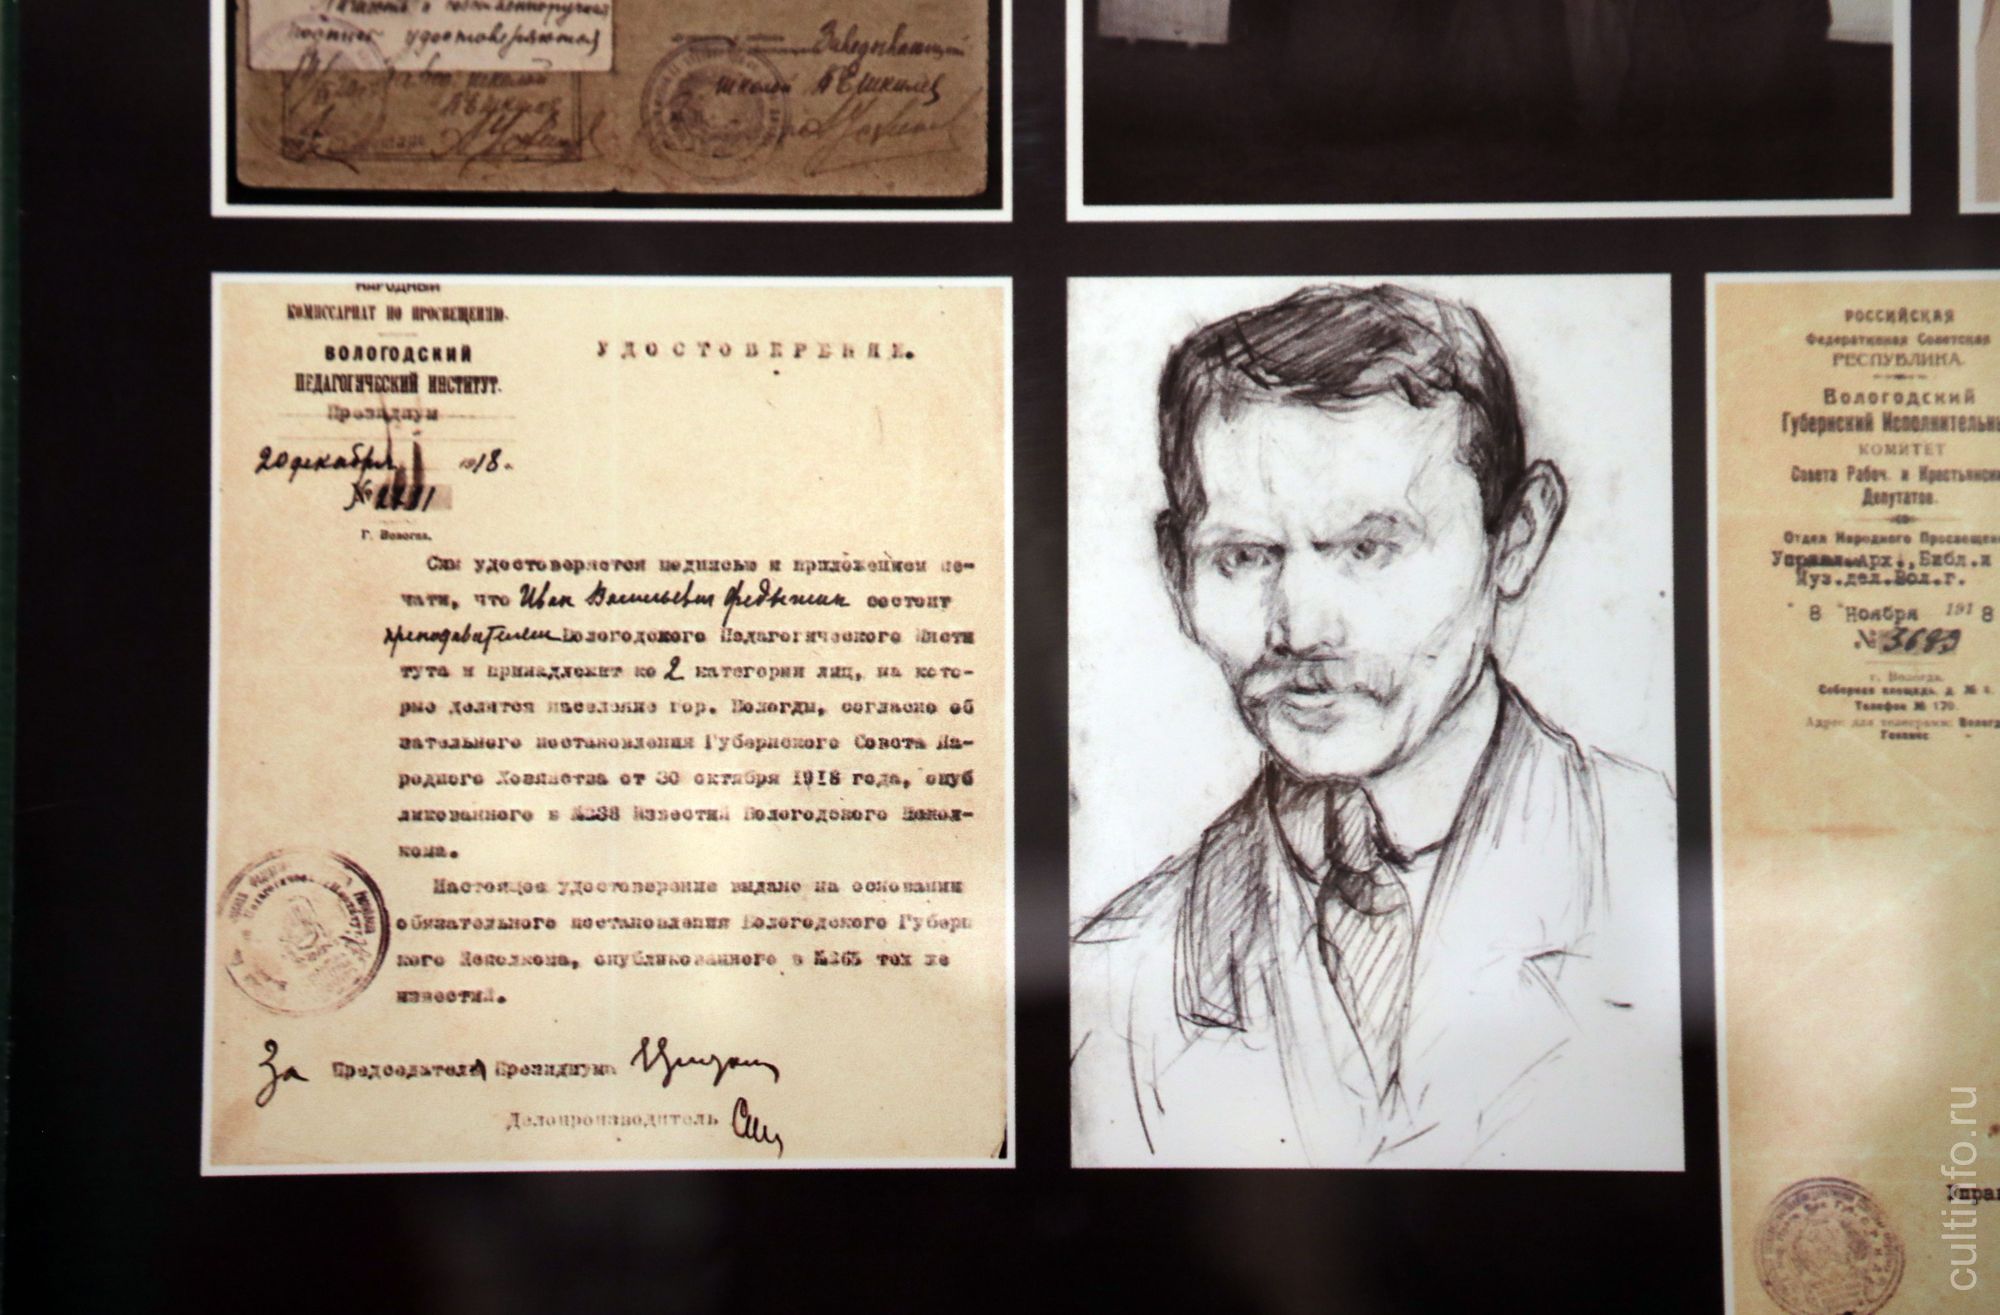 удостоверяется
Заведывающий
школой
НАРОДНЫЙ
КОМИССАРИАТ ПО ПРОСВЕЩЕНИЮ.
ВОЛОГОДСКИЙ
ПЕДАГОГИЧЕСКИЙ ИНСТИТУТ.
Президиум
20 декабря 1918.
№
Г. Вологда.
УДОСТОВЕРЕНИЕ.
Сим удостоверяется подписью и приложением пе-
чати, что Иван Васильевич Федышин состоит
преподавателем Вологодского Педагогического Инсти
тута и принадлежит ко 2 категории лиц, на кото-
рые делится население гор. Вологды, согласно об
зательного постановления Губернского Совета На-
родного Хозяйства от 30 октября 1918 года, опуб
ликованного в №238 Известий Вологодского Испол-
кома.
Настоящее удостоверение выдано на основании
обязательного постановления Вологодского Губерн
кого Исполкома, опубликованного в №265 тех же
известий.
За Председателя Президиума
Делопроизводитель
РОССИЙСКАЯ
Федеративная Советская
РЕСПУБЛИКА.
Вологодский
Губернский Исполнительны
КОМИТЕТ
Совета Рабоч. и Крестьянски
Депутатов.
Отдел Народного Просвещени
Управл.Арх.,Библ.и
Муз.дел.Вол.г.
8 Ноября 1918
№ 3683
г. Вологда.
Соборная площадь, д. №
Телефон № 170.
Адрес для телеграмм: Волог
cultinfo.ru